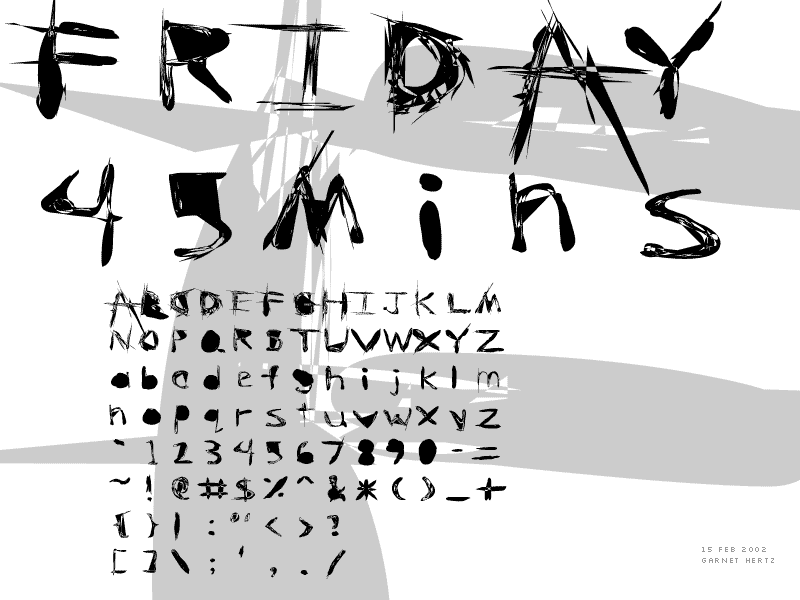 FRIDAY
45Mins
ABCDEFGHIJKLM
NOPQRSTUVWXYZ
abcdefghijklm
nopqrstuvwxyz
`1234567890-=
~!@#$%^&*()_+
{}|:"<>?
[]\;',./
15 FEB 2002
GARNET HERTZ